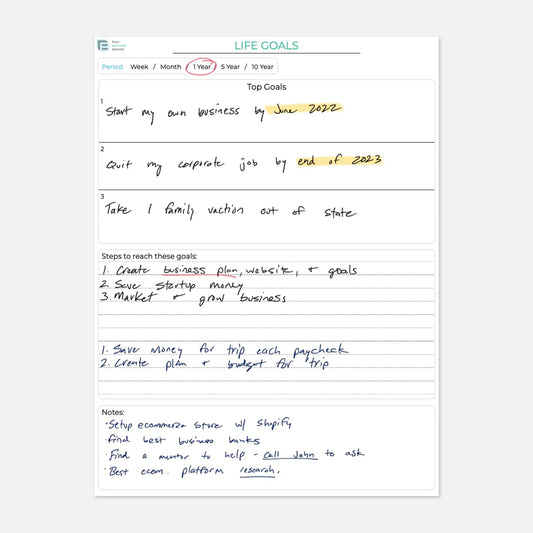 LIFE GOALS
Period: Week / Month / 1 Year / 5 Year / 10 Year
Top Goals
1
Start my own business by June 2022
2
Quit my corporate job by end of 2023
3
Take 1 family vaction out of state
Steps to reach these goals:
1. Create business plan, website, + goals
2. Save startup money
3. Market + grow business
1. Save money for trip each paycheck
2. Create plan + budget for trip
Notes:
·Setup ecommerce store w/ Shopify
·find best business banks
·Find a mentor to help - call John to ask
·Best ecom. platform research.